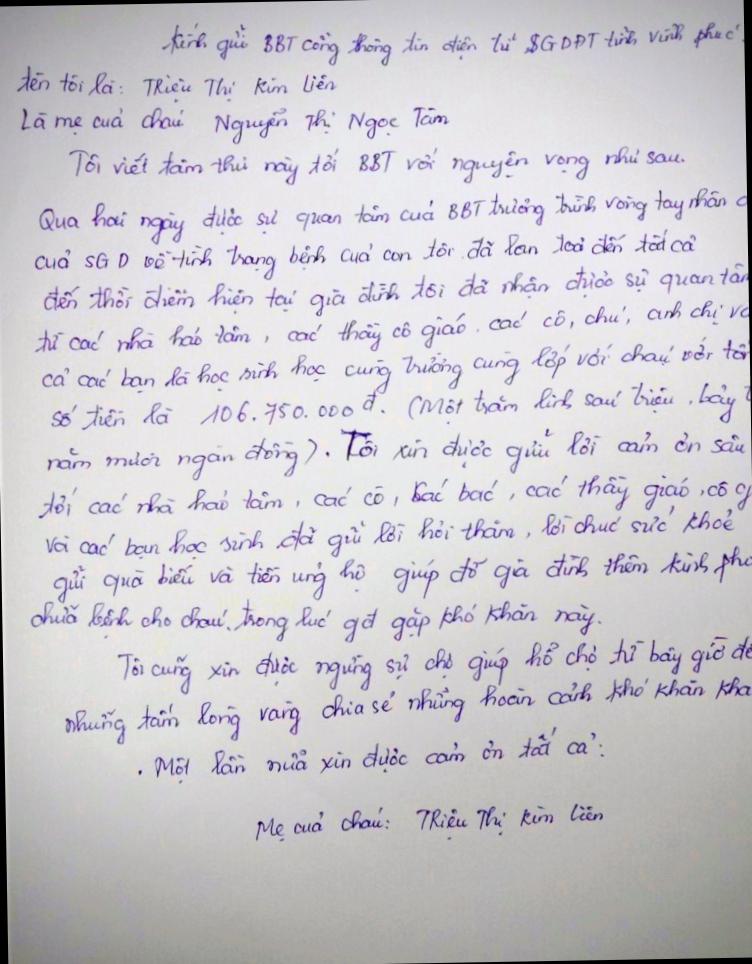 Kính gửi BBT cổng thông tin điện tử SGDĐT tỉnh vĩnh phúc.
tên tôi là: Triệu Thị Kim Liên
Là mẹ của cháu Nguyễn Thị Ngọc Tâm
Tôi viết tâm thư này tới BBT với nguyện vọng như sau.
Qua hai ngày được sự quan tâm của BBT trương trình vòng tay nhân
của SGD về tình trạng bệnh của con tôi đã lan toả đến tất cả
đến thời điểm hiện tại gia đình tôi đã nhận được sự quan tâm
từ các nhà hảo tâm, các thầy cô giáo. các cô, chú, anh chị và
cả các bạn là học sinh học cùng trường cùng lớp với cháu với
số tiền là 106.750.000đ. (Một trăm linh sáu triệu, bảy
năm mươi ngàn đồng). Tôi xin được gửi lời cảm ơn sâu
tới các nhà hảo tâm, các cô, các bác, các thầy giáo, cô
và các bạn học sinh đã gửi lời hỏi thăm, lời chúc sức khoẻ
gửi quà biếu và tiền ủng hộ giúp đỡ gia đình thêm kinh
chữa bệnh cho cháu, trong lúc gđ gặp khó khăn này.
Tôi cũng xin được ngừng sự chợ giúp hỗ chợ từ bây giờ để
những tấm lòng vàng chia sẻ những hoàn cảnh khó khăn
. Một lần nữa xin được cảm ơn tất cả:
Mẹ của cháu: Triệu Thị Kim Liên